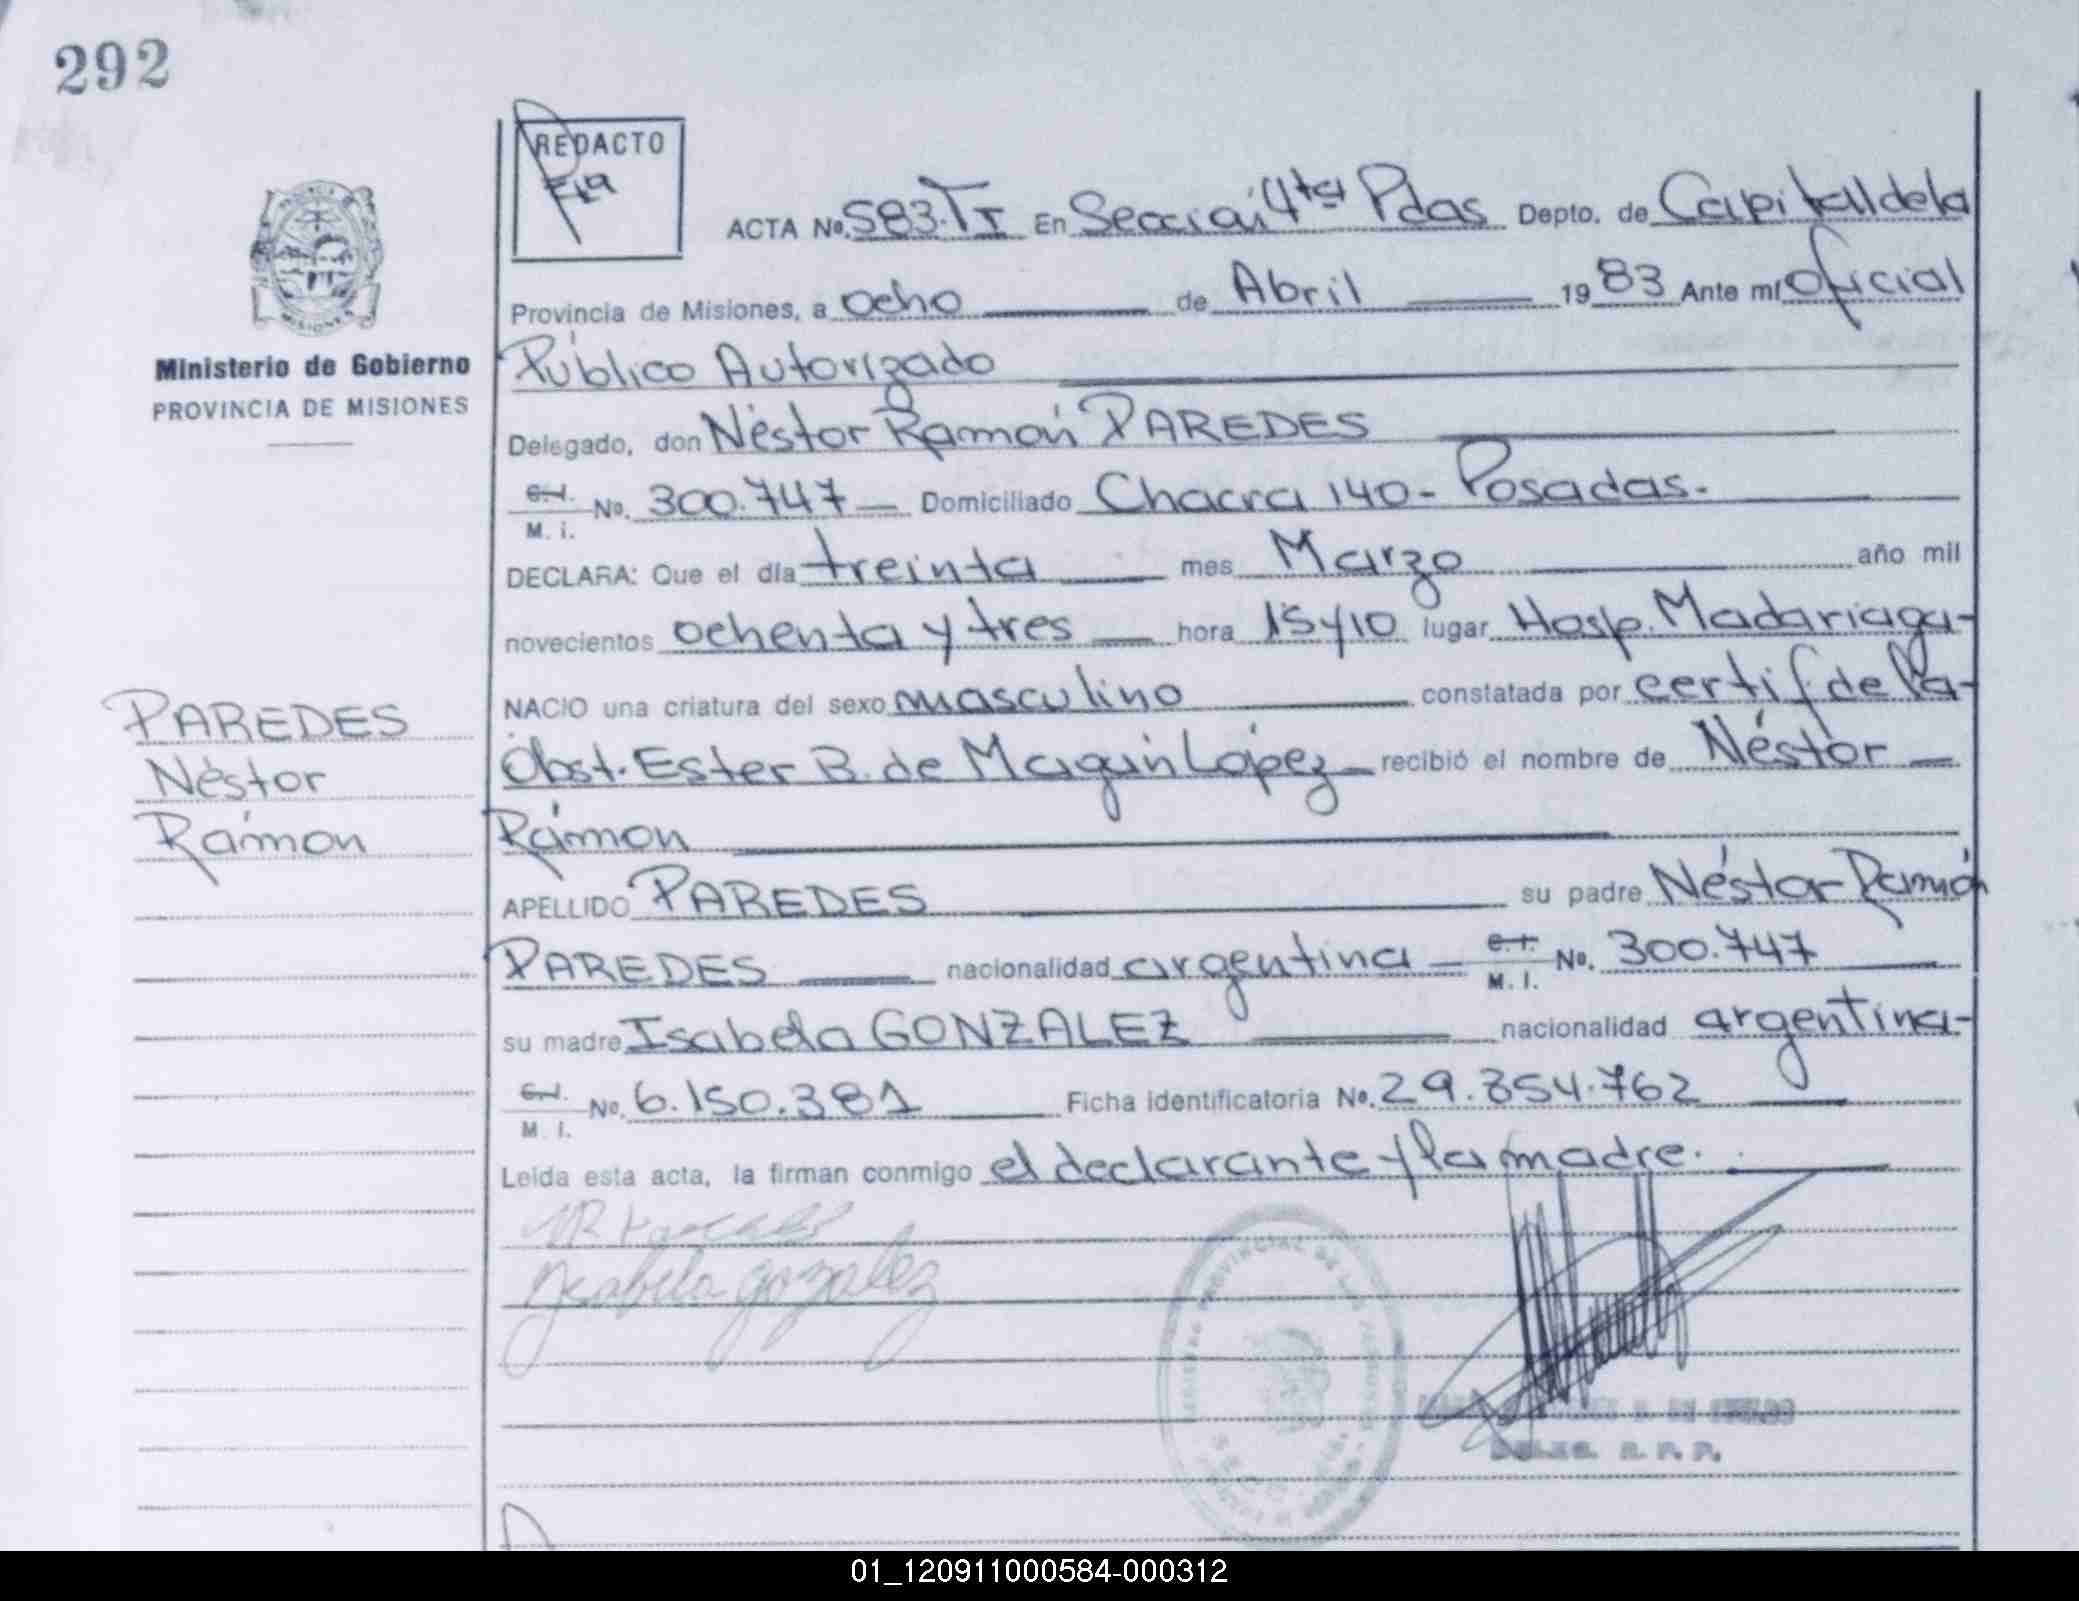 292
REDACTO
ACTA No. 583.TI En Sección 4ta Pdas Depto. de Capital de la
Provincia de Misiones, a ocho de Abril 1983 Ante mí Oficial
Ministerio de Gobierno
PROVINCIA DE MISIONES
Público Autorizado
Delegado, don Néstor Ramón PAREDES
C.I. M. I. No. 300.747 Domiciliado Chacra 140 - Posadas.
DECLARA: Que el día treinta mes Marzo año mil
novecientos ochenta y tres hora 15 y 10 lugar Hosp. Madariaga-
NACIO una criatura del sexo masculino constatada por certif de la-
Obst. Ester B. de López recibió el nombre de Néstor
Rámon
PAREDES
Néstor
Rámon
APELLIDO PAREDES su padre Néstor Ramón
PAREDES nacionalidad argentina C.I. M. I. No. 300.747
su madre Isabela GONZALEZ nacionalidad argentina-
C.I. M. I. No. 6.150.381 Ficha identificatoria No. 29.854.762
Leída esta acta, la firman conmigo el declarante y la madre.
Isabela gozalez
PROVINCIAL DE LAS PERSONAS
01_120911000584-000312